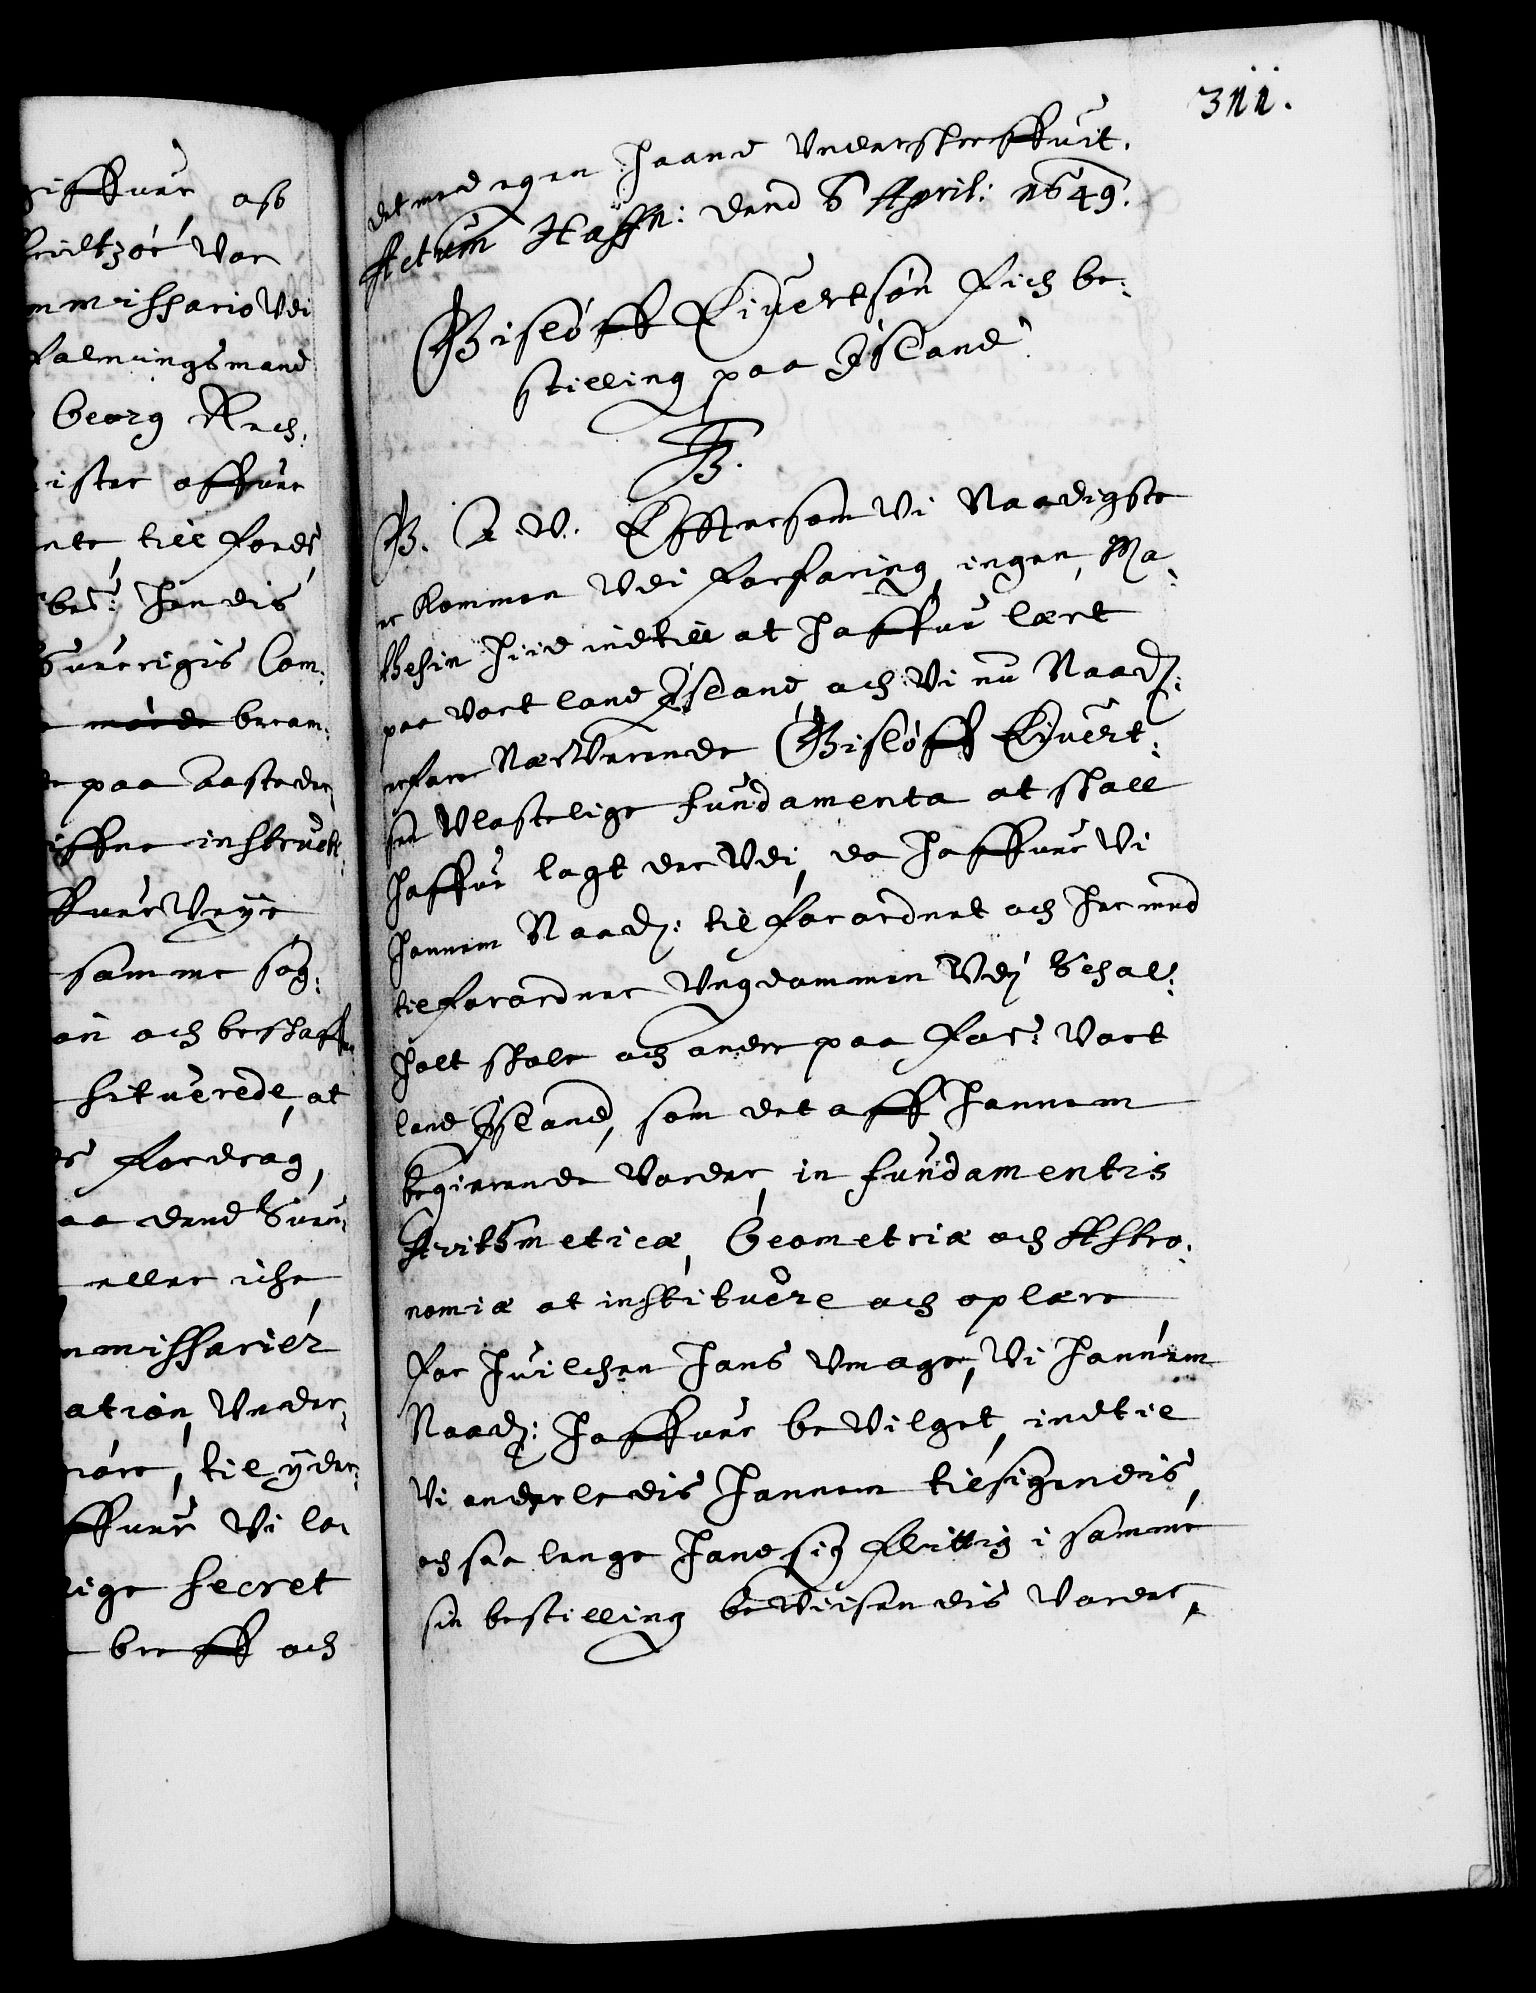 311.
giffuer oss
vor
mmissario Vdi
falmingsmand
Georg Rech:
ister offuer
nte, till fords
bes: hendis
Suerrigis Com:
morde beram:
paa Aastaden
iffne instruct:
ffuer Vrye
samme sag:
on och beskaff
situerede, at
s fordrag,
aa dend Suen:
eller icke
mmissarier
ation, Vnder,
, til yder:
ffuer Vi la:
ige secret
breff och
det med egen Haand Vnderskreffuit.
Actum Haffn: dend 6 April: 1649.
Gisloff Eiuertsøn Fich be:
stilling paa Jsland
G. A. V. Effter som Vi Naadigste
er kommen Vdi forfaring, ingen Ma,
thesin hiid indtill at haffue lært
paa Vort land Jsland, och Vi nu Naad:
erfare NærVerende Gisloff Eyuert:
sen Vlastelige fundamenta at skall
haffue lagt der Vdi, da haffuer Vi
hannem Naad: til forordnet och her med
tilforordner Vngdommen Vdj Schal:
holt skole och andre paa For: Vort
land Jsland, som det aff hannem
begierende Vorder, in fundamentis
Arithmeticæ, Geometriæ och Astro:
nomiæ at instituere och oplære
for huilchen hans Vmage, Vi hannem
Naad: haffuer beVilget, indtil
Vi anderledis hannem tilsigendis,
och saa lenge hand sig flittig i samme
sin bestilling beViisendis Vorder,